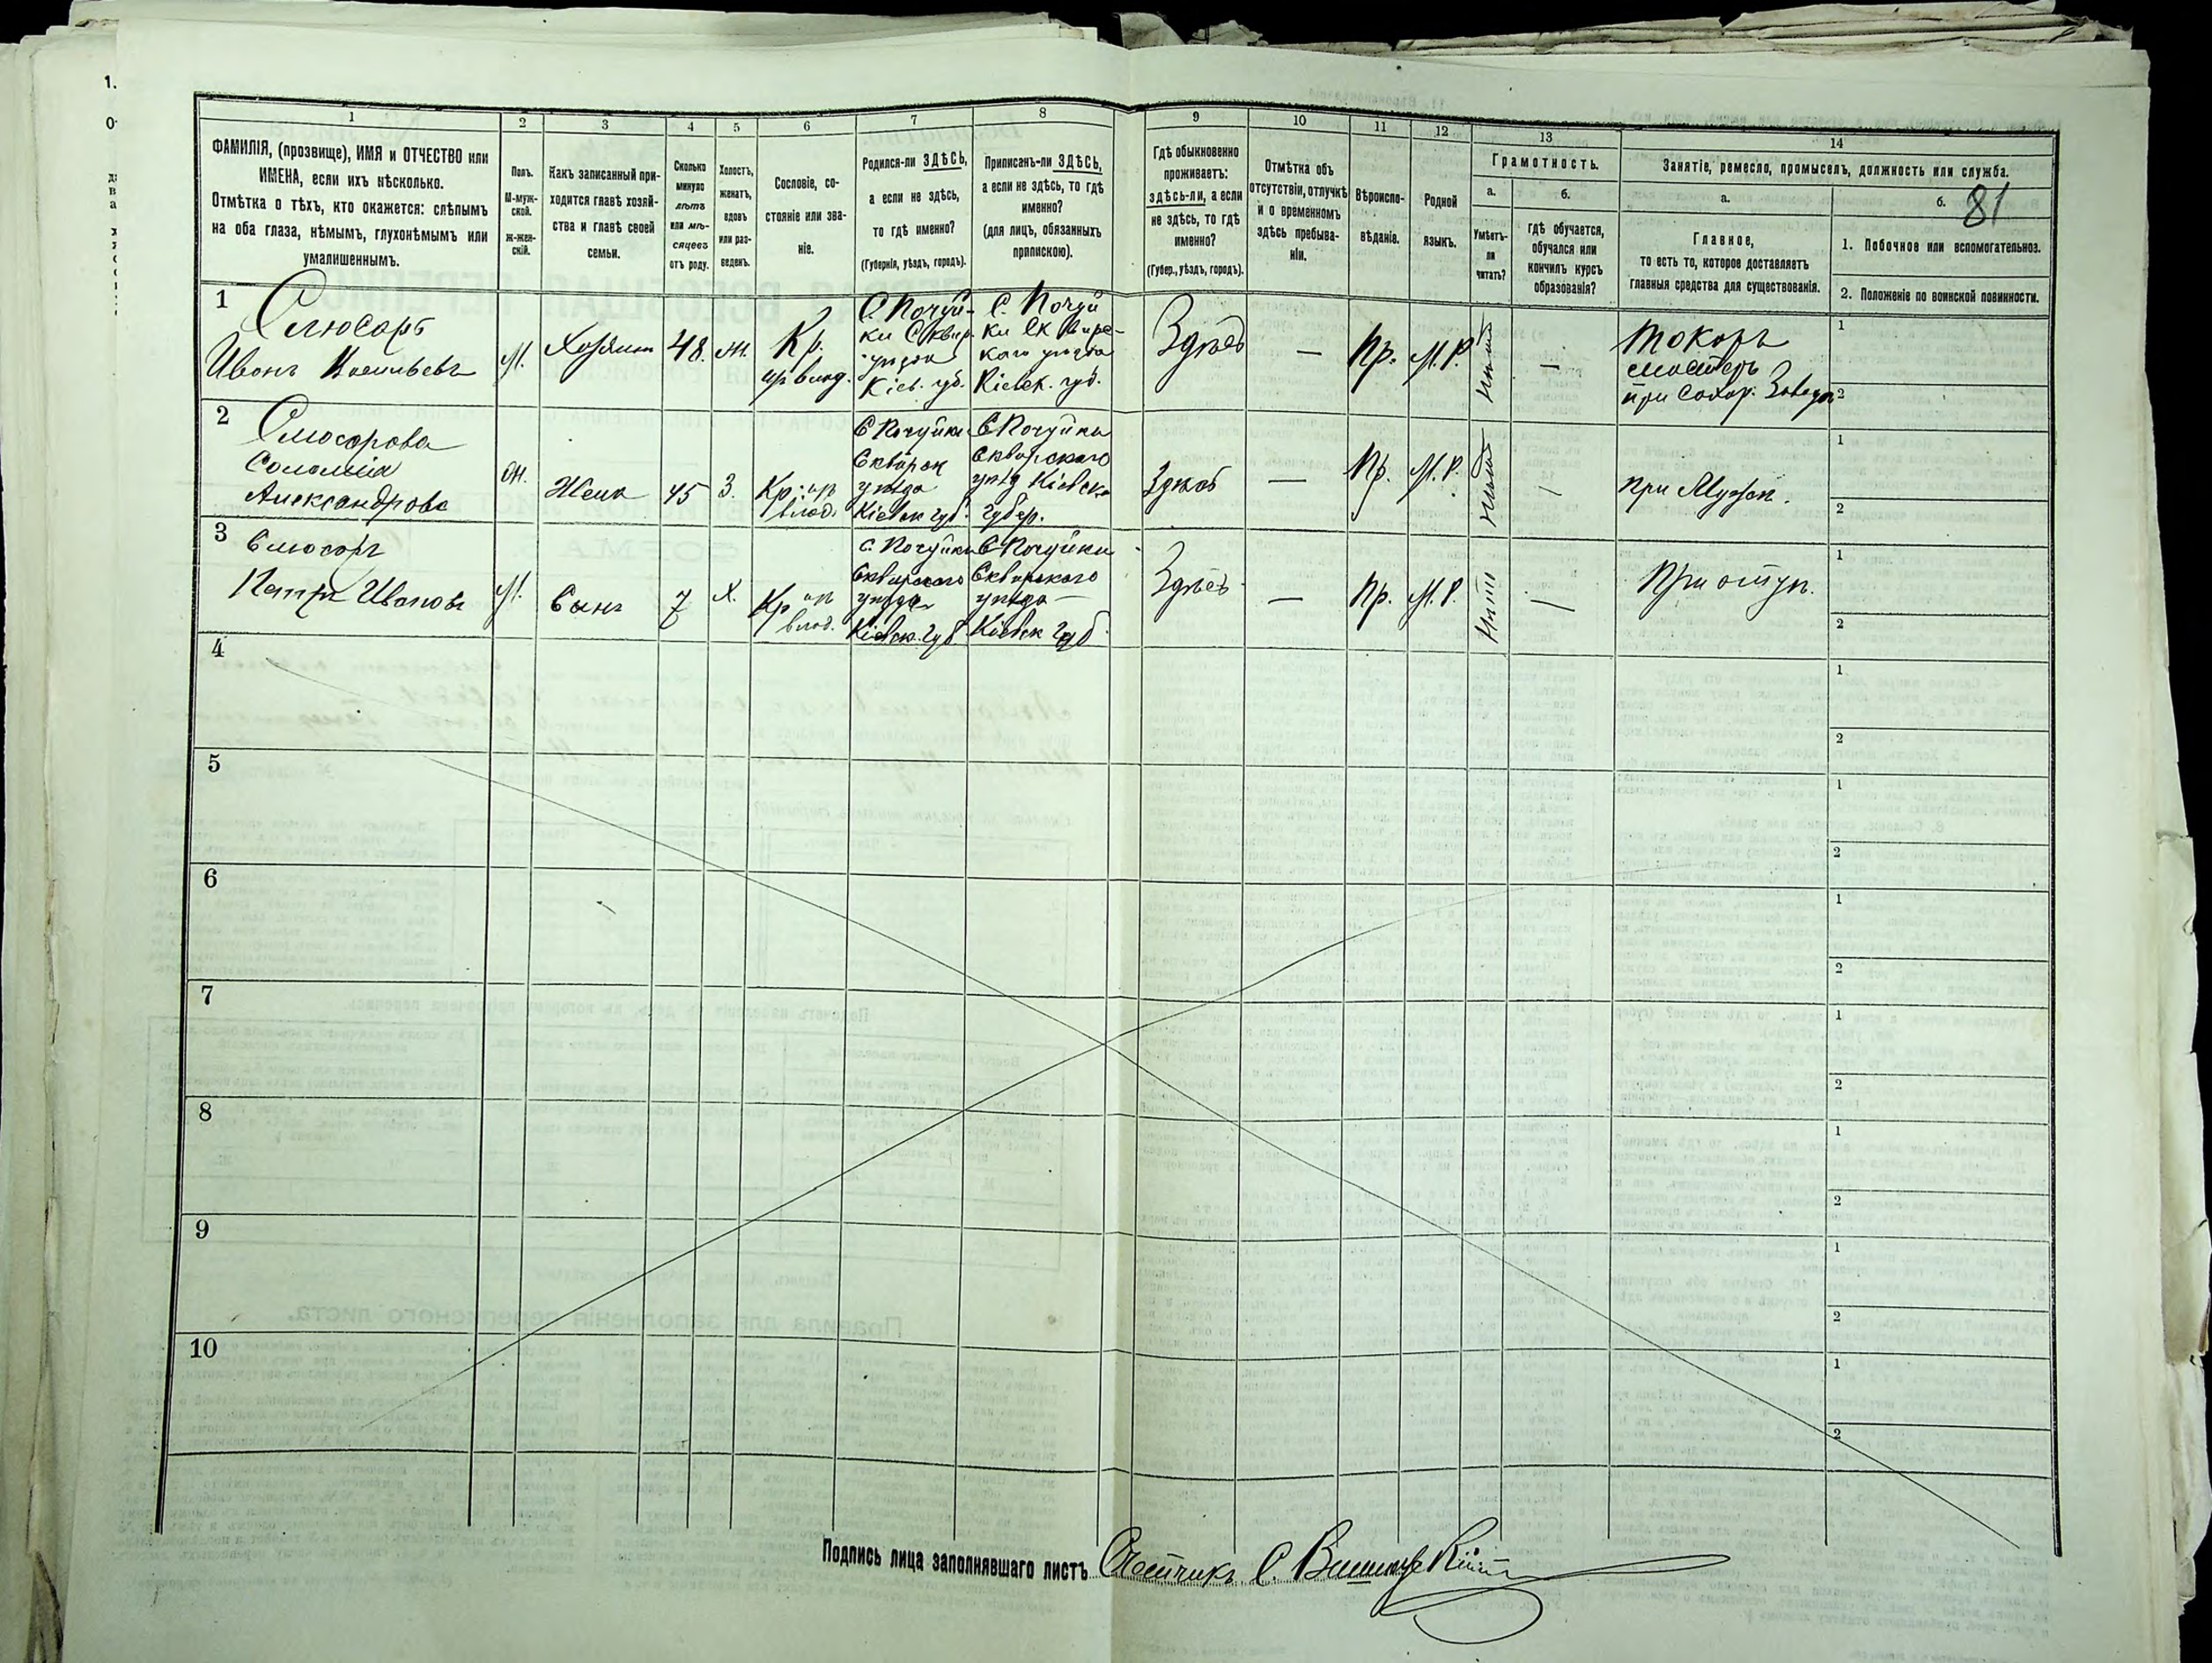 1
2
3
4
5
6
7
8
9
10
11
12
13
14
ФАМИЛІЯ, (прозвище), ИМЯ и ОТЧЕСТВО или
ИМЕНА, если ихъ нѣсколько.
Отмѣтка о тѣхъ, кто окажется: слѣпымъ
на оба глаза, нѣмымъ, глухонѣмымъ или
умалишеннымъ.
Полъ.
М-муж-
ской.
Ж-жен-
скій.
Какъ записанный при-
ходится главѣ хозяй-
ства и главѣ своей
семьи.
Сколько
минуло
лѣтъ
или мѣ-
сяцевъ
отъ роду.
Холостъ,
женатъ,
вдовъ
или раз-
веденъ.
Сословіе, со-
стояніе или зва-
ніе.
Родился-ли ЗДѢСЬ,
а если не здѣсь,
то гдѣ именно?
(Губернія, уѣздъ, городъ).
Приписанъ-ли ЗДѢСЬ,
а если не здѣсь, то гдѣ
именно?
(для лицъ, обязанныхъ
припискою).
Гдѣ обыкновенно
проживаетъ:
здѣсь-ли, а если
не здѣсь, то гдѣ
именно?
(Губер., уѣздъ, городъ).
Отмѣтка объ
отсутствіи, отлучкѣ
и о временномъ
здѣсь пребыва-
ніи.
Вѣроиспо-
вѣданіе.
Родной
языкъ.
Грамотность.
а.
Умѣетъ-
ли
читать?
б.
гдѣ обучается,
обучался или
кончилъ курсъ
образованія?
Занятіе, ремесло, промыселъ, должность или служба.
а.
Главное,
то есть то, которое доставляетъ
главныя средства для существованія.
б.
81
1. Побочное или вспомогательное.
2. Положеніе по воинской повинности.
1
Слюсарь
Иванъ Васильевъ
М.
Хозяинъ
48.
Ж.
Кр.
С. Почуй-
ки Сквир.
уѣзда
Кіев. губ.
С. Почуй
ки Сквирс-
каго уѣзда
Кіевск. губ.
Здѣсь
—
Пр.
М.Р.
Нѣтъ
—
Токарь
1
2
2
Слюсарова
Соломія
Александрова
Ж.
Жена
45
З.
Кр. из
влад.
С Почуйки
Сквирск
уѣзда
Кіевск губ.
С Почуйки
Сквирскаго
уѣзд Кіевск
Губер.
Здѣсь
—
Пр.
М.Р.
Нѣтъ
—
При Мужѣ.
1
2
3
Слюсарь
Петръ Ивановъ
М.
Сынъ
7
Х.
Кр из
влад.
С. Почуйки
Сквирскаго
уѣзда
Кіевск. губ.
С Почуйки
Сквирского
уѣзда
Кіевск губ
Здѣсь
—
Пр.
М.Р.
Нѣтъ
—
При отцѣ.
1
2
4
1
2
5
1
2
6
1
2
7
1
2
8
1
2
9
1
2
10
1
2
Подпись лица заполнявшаго листъ Счетчикъ С.